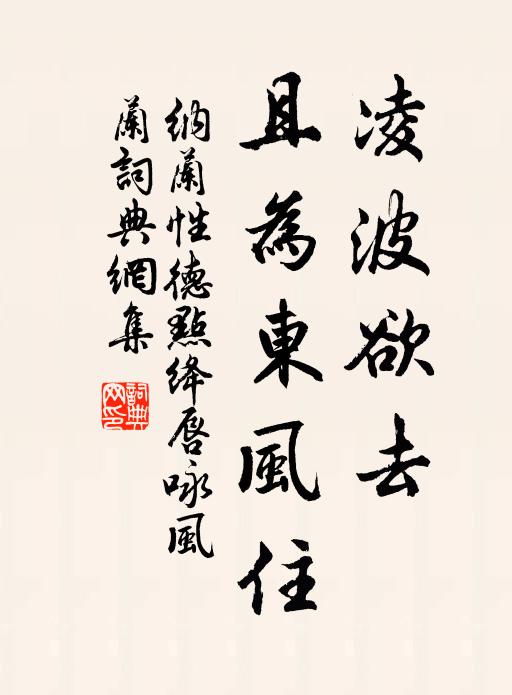 凌波欲去
且為東風住
納蘭性德點絳唇咏風
蘭詞典網集
詞典網印